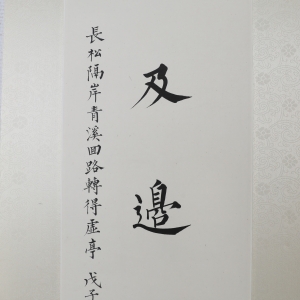 及邊
長松隔岸青溪回路轉得虛亭 戊子